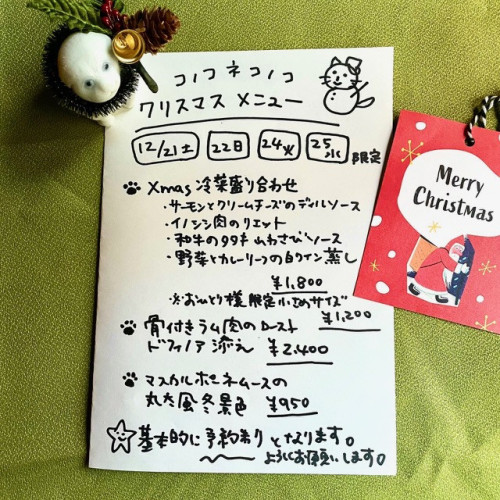 コノコネコノコ
クリスマスメニュー
12/21土 22日 24火 25水 限定
Xmas 冷菜盛り合わせ
・サーモンとクリームチーズのディルソース
・イノシシ肉のリエット
・和牛のタタキ 山わさびソース
・野菜とカレーリーフの白ワイン蒸し
¥1,800
※おひとり様限定小さめサイズ
¥1,200
骨付きラム肉のロースト
ドフィノア添え ¥2,400
マスカルポーネムースの
丸太風冬景色 ¥950
基本的に予約制となります。
ようしくお願いします。
Merry
Christmas